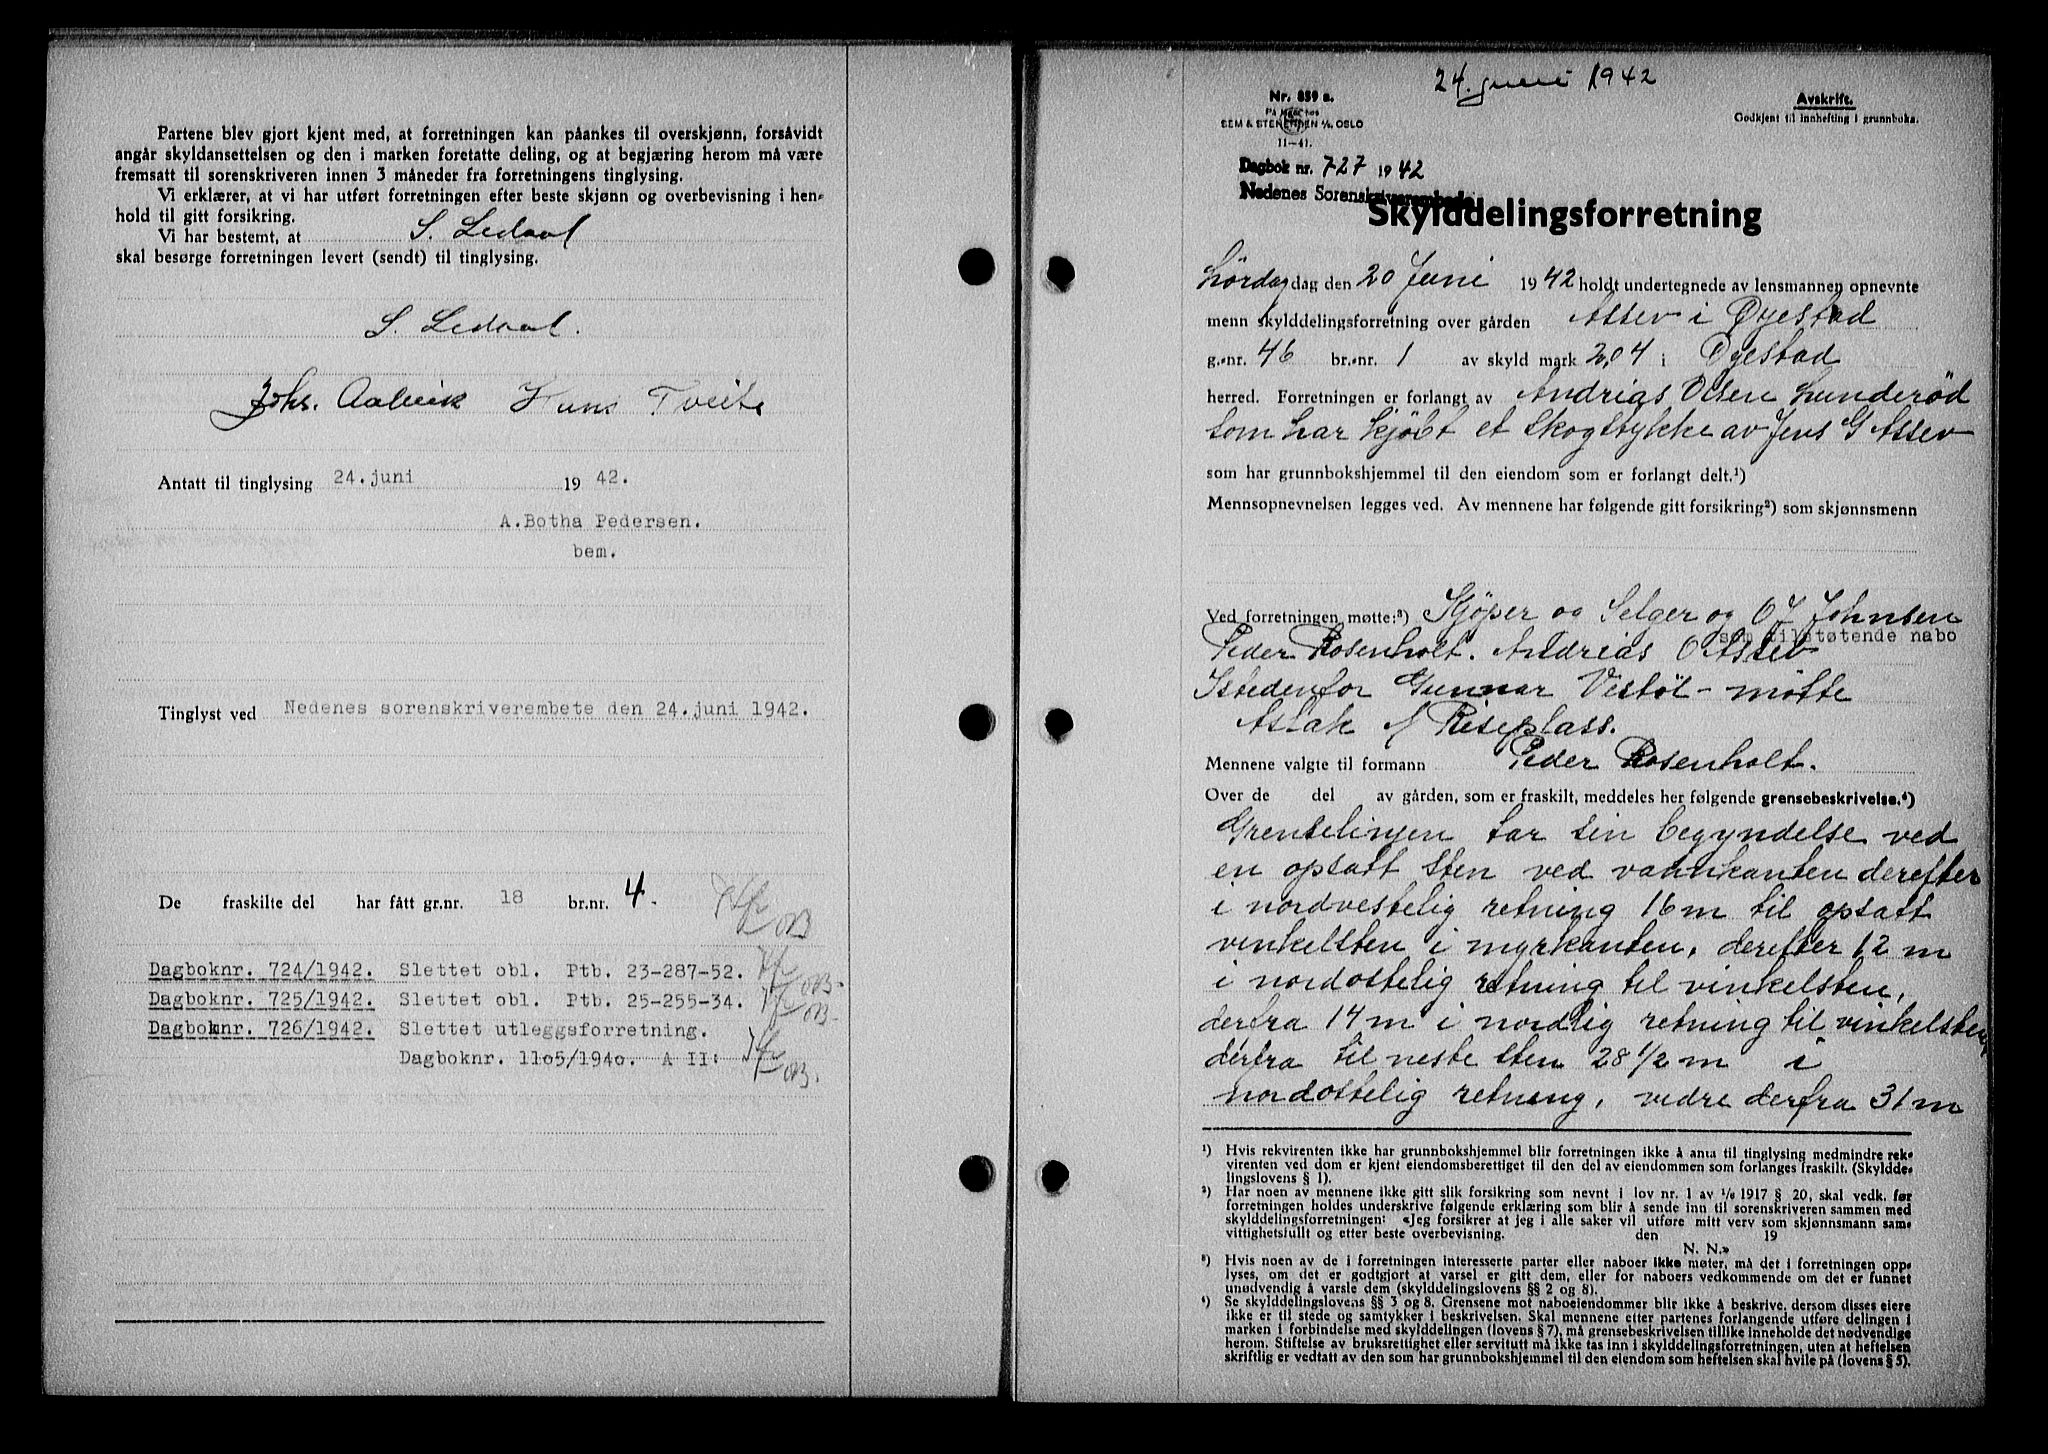 Partene blev gjort kjent med, at forretningen kan påankes til overskjønn, forsåvidt
angår skyldansettelsen og den i marken foretatte deling, og at begjæring herom må være
fremsatt til sorenskriveren innen 3 måneder fra forretningens tinglysing.
Vi erklærer, at vi har utført forretningen efter beste skjønn og overbevisning i hen-
hold til gitt forsikring.
Vi har bestemt, at S. Ledaal
skal besørge forretningen levert (sendt) til tinglysing.
S. Ledaal.
Johs. Aalvik Hans Tveite
Antatt til tinglysing 24. juni 1942.
A. Botha Pedersen.
bem.
Tinglyst ved Nedenes sorenskriverembete den 24. juni 1942.
De fraskilte del har fått gr.nr. 18 br.nr. 4.
Dagboknr. 724/1942. Slettet obl. Ptb. 23-287-52.
Dagboknr. 725/1942. Slettet obl. Ptb. 25-255-34.
Dagboknr. 726/1942. Slettet utleggsforretning.
Dagboknr. 1105/1940. A II:
24. juni 1942
Nr. 859 a.
SEM & STENERSEN A/S, OSLO
11-41.
Avskrift.
Godkjent til innhefting i grunnboka.
Dagbok nr. 727 1942
Nedenes Sorenskriverembete
Skylddelingsforretning
Lördag dag den 20 Juni 1942 holdt undertegnede av lensmannen opnevnte
menn skylddelingsforretning over gården Assev i Øyestad
g.-nr. 46 br.-nr. 1 av skyld mark 2,04 i Øyestad
herred. Forretningen er forlangt av Andrias Olsen Lunderød
som har kjøbt et skogstykke av Jens G Assev
som har grunnbokshjemmel til den eiendom som er forlangt delt.¹)
Mennsopnevnelsen legges ved. Av mennene har følgende gitt forsikring²) som skjønnsmenn
Ved forretningen møtte:³) Kjøper og Selger og O J Johnsen
som tilstøtende nabo
Peder Rosenholt. Andreas O Assev
Istedenfor Gunnar Vestøl - møtte
Aslak A Riseplass.
Mennene valgte til formann Peder Rosenholt.
Over de del av gården, som er fraskilt, meddeles her følgende grensebeskrivelse.⁴)
Grenselinjen tar sin begyndelse ved
en opsatt sten ved vannkanten derefter
i nordvestelig retning 16 m til opsatt
vinkelsten i myrkanten, derefter 12 m
i nordostelig retning til vinkelsten,
derfra 14 m i nordlig retning til vinkelsten
derfra til neste sten 28 1/2 m i
nordostelig retning, vidre derfra 31 m
¹) Hvis rekvirenten ikke har grunnbokshjemmel blir forretningen ikke å anta til tinglysing medmindre rek-
virenten ved dom er kjent eiendomsberettiget til den del av eiendommen som forlanges fraskilt. (Skyldde-
lingslovens § 1).
²) Har noen av mennene ikke gitt slik forsikring som nevnt i lov nr. 1 av 1/6 1917 § 20, skal vedk. før
forretningen holdes underskrive følgende erklæring som blir å sende inn til sorenskriveren sammen med
skylddelingsforretningen: «Jeg forsikrer at jeg i alle saker vil utføre mitt verv som skjønnsmann sam-
vittighetsfullt og etter beste overbevisning. den 19
N. N.»
³) Hvis noen av de i forretningen interesserte parter eller naboer ikke møter, må det i forretningen opp-
lyses, om det er godtgjort at varsel er gitt dem, eller for naboers vedkommende om det er funnet
unødvendig å varsle dem (skylddelingslovens §§ 2 og 8).
⁴) Se skylddelingslovens §§ 3 og 8. Grensene mot naboeiendommer blir ikke å beskrive, dersom disses eiere
ikke er til stede og samtykker i beskrivelsen. Skal mennene etter partenes forlangende utføre delingen i
marken i forbindelse med skylddelingen (lovens § 7), må grensebeskrivelsen tillike inneholde det nødvendige
herom. Stiftelse av bruksrettighet eller servitutt må ikke tas inn i skylddelingsforretningen, uten at heftelsen
skriftlig er vedtatt av den som har grunnbokshjemmel til den eiendom som heftelsen skal hvile på (lovens § 5).